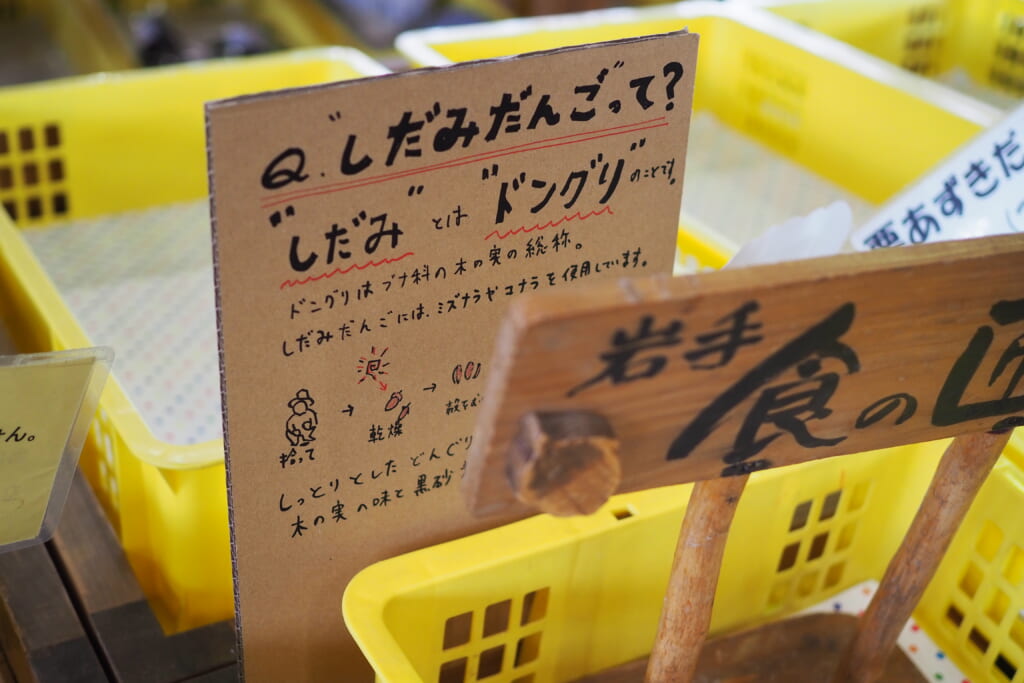 Q. "しだみだんご"って?
"しだみ" とは "ドングリ" のことです。
ドングリは ブナ科の木の実の総称。
しだみだんごには、ミズナラやコナラを使用しています。
拾って → 乾燥 → 殻をむ
しっとりとした どんぐり
木の実の味と 黒砂
岩手 食の匠
あずきだ
せん。